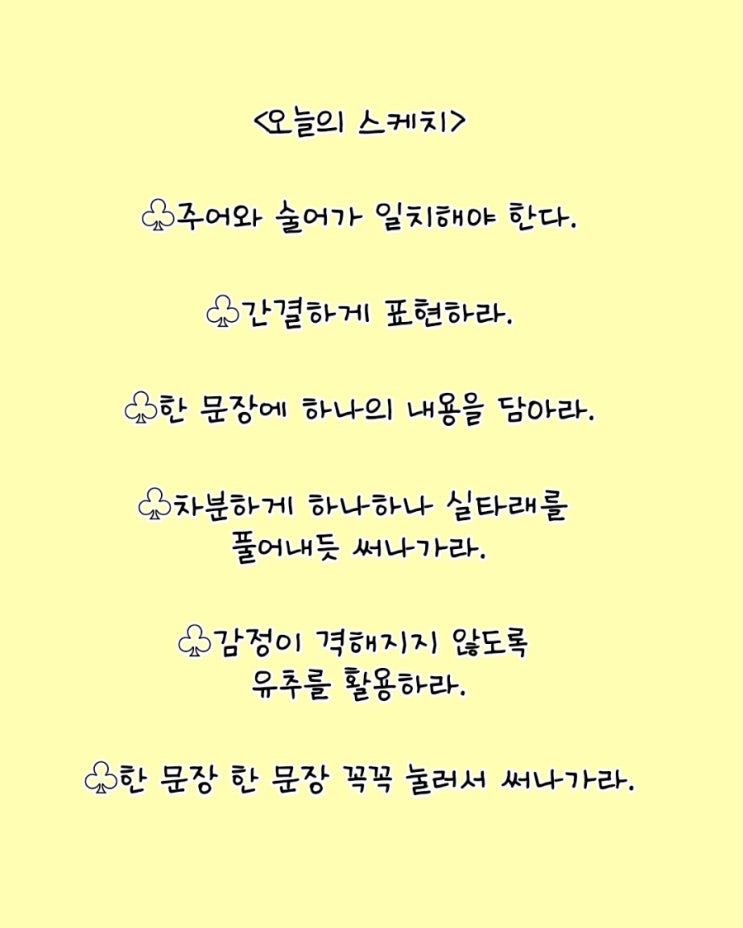 <오늘의 스케치>
♧주어와 술어가 일치해야 한다.
♧간결하게 표현하라.
♧한 문장에 하나의 내용을 담아라.
♧차분하게 하나하나 실타래를
풀어내듯 써나가라.
♧감정이 격해지지 않도록
유추를 활용하라.
♧한 문장 한 문장 꼭꼭 눌러서 써나가라.